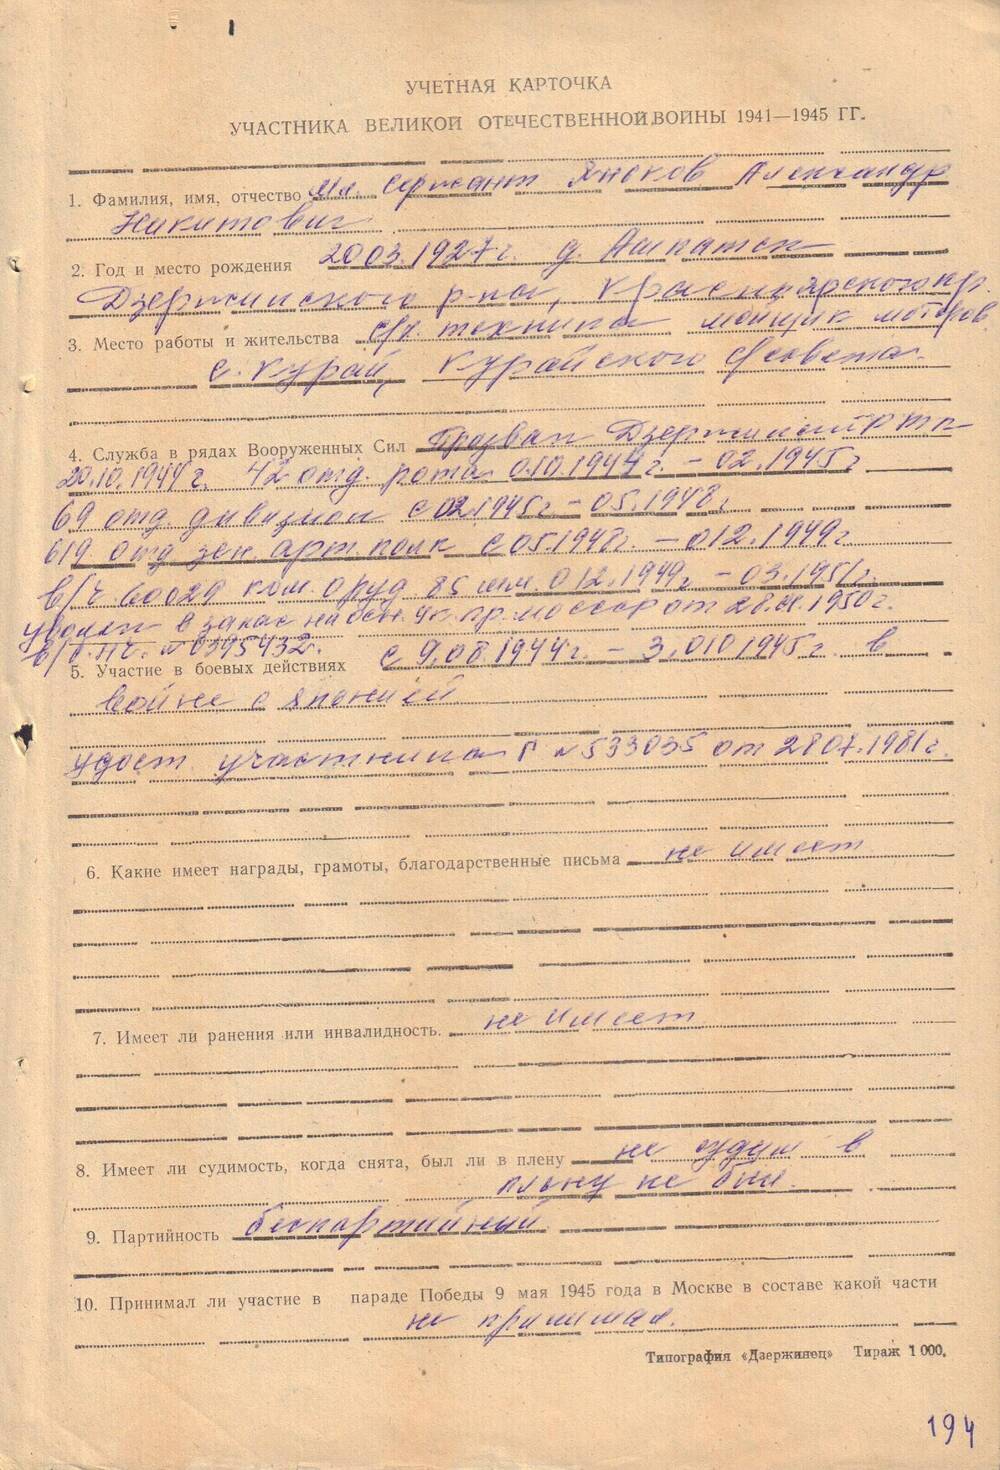 УЧЕТНАЯ КАРТОЧКА
УЧАСТНИКА ВЕЛИКОЙ ОТЕЧЕСТВЕННОЙ ВОЙНЫ 1941—1945 ГГ.
1. Фамилия, имя, отчество Мл. Сержант Янсков Александр
Никитович
2. Год и место рождения 20 03.1927 г. д. Ашпатск
Дзержинского р-на, Красноярского кр.
3. Место работы и жительства с/х. техника мойщик моторов
с. Курай, Курайского с/совета.
4. Служба в рядах Вооруженных Сил Призван Дзержинск РТП
20.10.1944 г. 42 отд. рота 010.1944 г. – 02.1945 г
69 отд дивизион с 02.1945 г – 05.1948 г
619 отд зен. арт. полк с 05.1948 г. – 012.1949 г
в/ч 60029 ком. оруд 85 мм. 012.1949 г – 03.1951 г.
уволен в запас на осн. ук. пр. МССССР от 28.01.1950 г.
в/б НЧ. № 0395432.
5. Участие в боевых действиях с 9.08 1944 г. – 3.010 1945 г. в
войне с Японией
удост. участника Г № 533035 от 28 07.1981 г.
6. Какие имеет награды, грамоты, благодарственные письма не имеет
7. Имеет ли ранения или инвалидность. не имеет
8. Имеет ли судимость, когда снята, был ли в плену не судим в
плену не был.
9. Партийность беспартийный
10. Принимал ли участие в параде Победы 9 мая 1945 года в Москве в составе какой части
не принимал.
Типография «Дзержинец» Тираж 1 000.
194